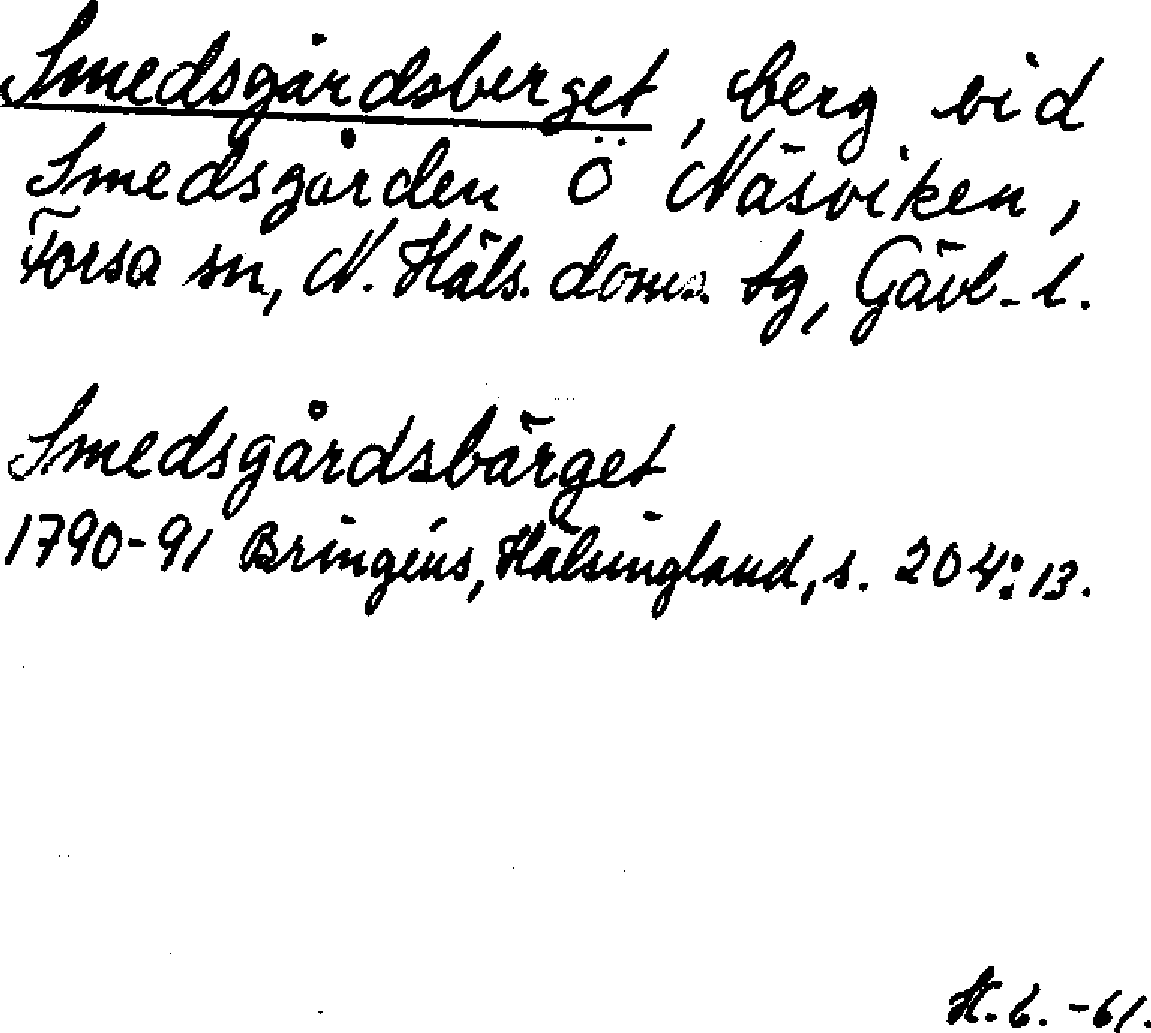 Smedsgårdsberget, berg vid
Smedsgården Ö Näsviken,
Forsa sn, N. Häls. doms. tg, Gävl. l.
Smedsgårdsbärget
1790-91 Bringéus, Hälsingland, s. 204:13.
-61.